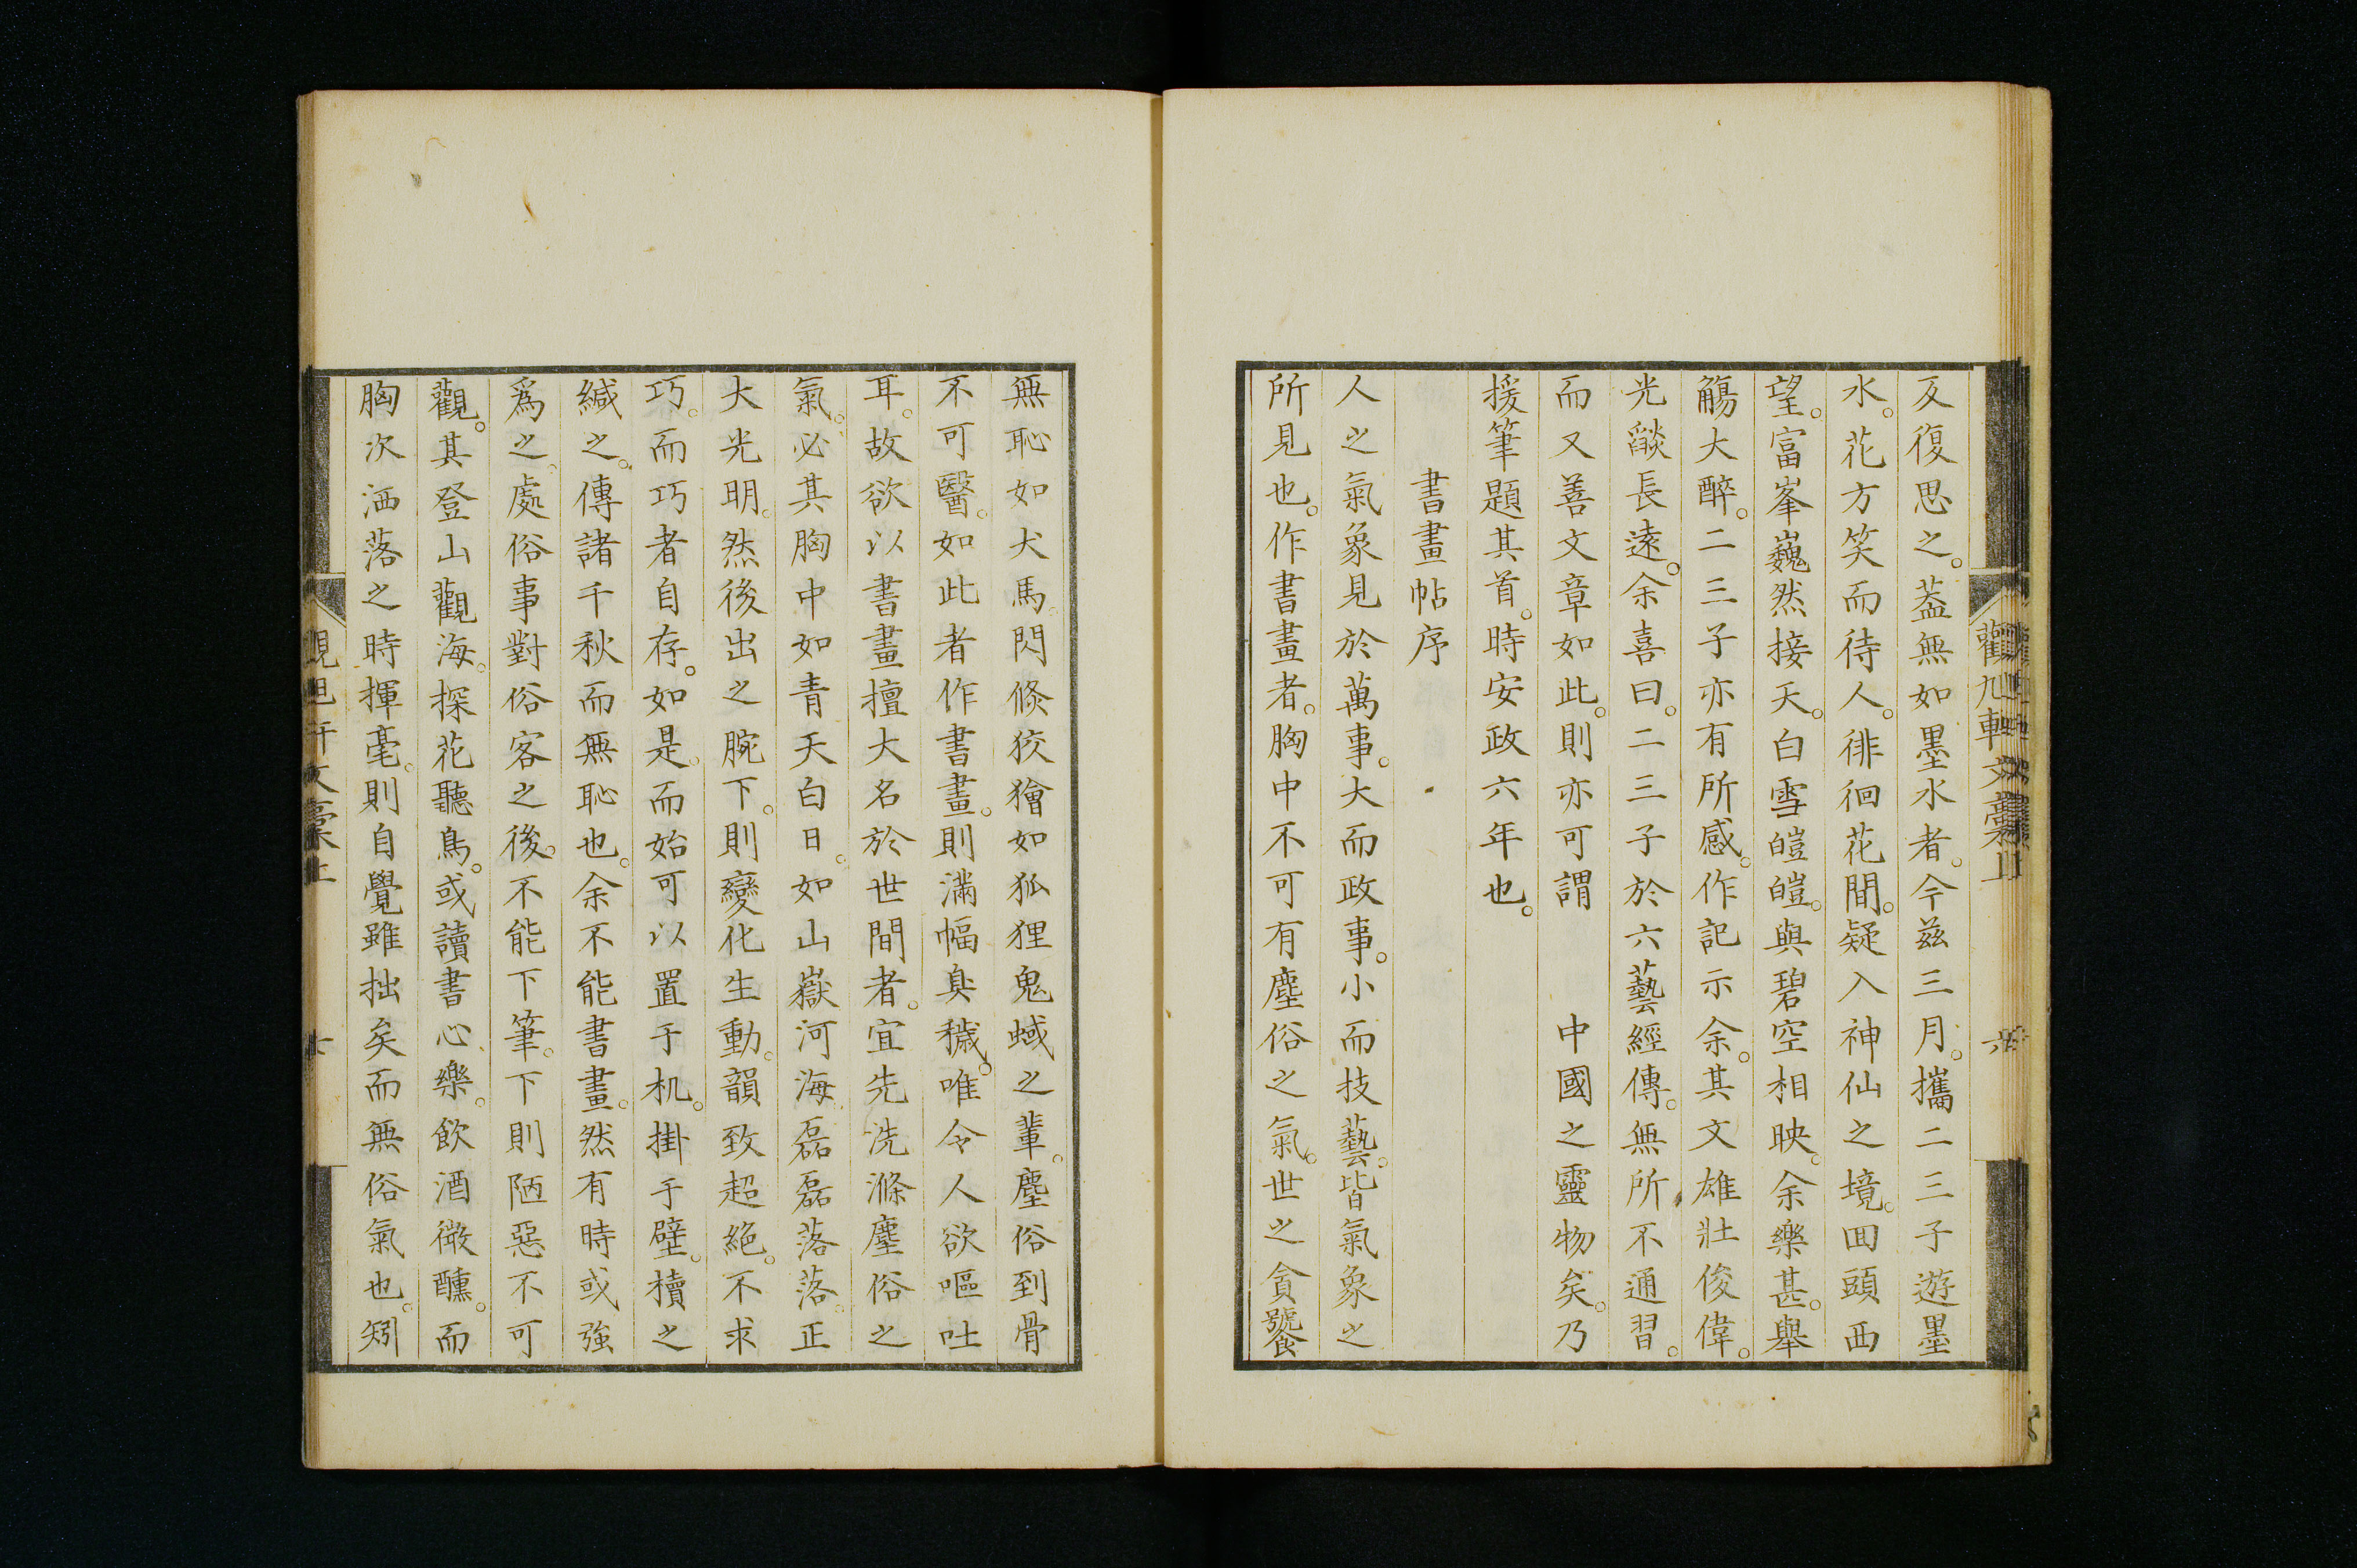 反復思之。葢無如墨水者。今茲三月。攜二三子遊墨
水。花方笑而待人。徘徊花間。疑入神仙之境。回頭西
望。富峯巍然接天。白雪皚皚。與碧空相映。余樂甚。舉
觴大醉。二三子亦有所感。作記示余。其文雄壯俊偉。
光燄長遠。余喜曰。二三子於六藝經傳。無所不通習。
而又善文章如此。則亦可謂　中國之靈物矣。乃
援筆題其首。時安政六年也。
書畫帖序
人之氣象見於萬事。大而政事。小而技藝。皆氣象之
所見也。作書畫者。胸中不可有塵俗之氣。世之貪饕
無恥如犬馬。閃倏狡獪如狐狸鬼蜮之輩。塵俗到骨
不可醫。如此者作書畫。則滿幅臭穢。唯令人欲嘔吐
耳。故欲以書畫擅大名於世間者。宜先洗滌塵俗之
氣。必其胸中如青天白日。如山嶽河海磊磊落落。正
大光明。然後出之腕下。則變化生動。韻致超絕。不求
巧。而巧者自存。如是。而始可以置于机。掛于壁。櫝之
緘之。傳諸千秋而無恥也。余不能書畫。然有時或強
爲之。處俗事對俗客之後。不能下筆。下則陋惡不可
觀。其登山觀海。探花聽鳥。或讀書心樂。飲酒微醺。而
胸次洒落之時揮毫。則自覺雖拙矣而無俗氣也。矧
觀旭軒文稾上
六